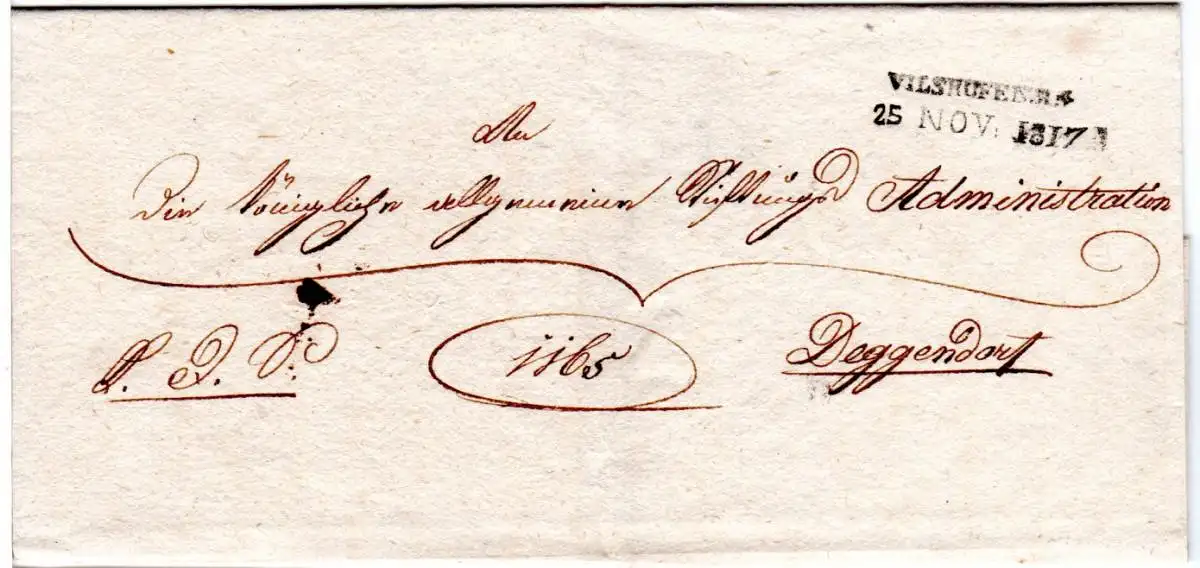 VILSHOFEN.R.4
25 NOV. 1817
An
Die königliche allgemeine Stiftungs Administration
1165
Deggendorf